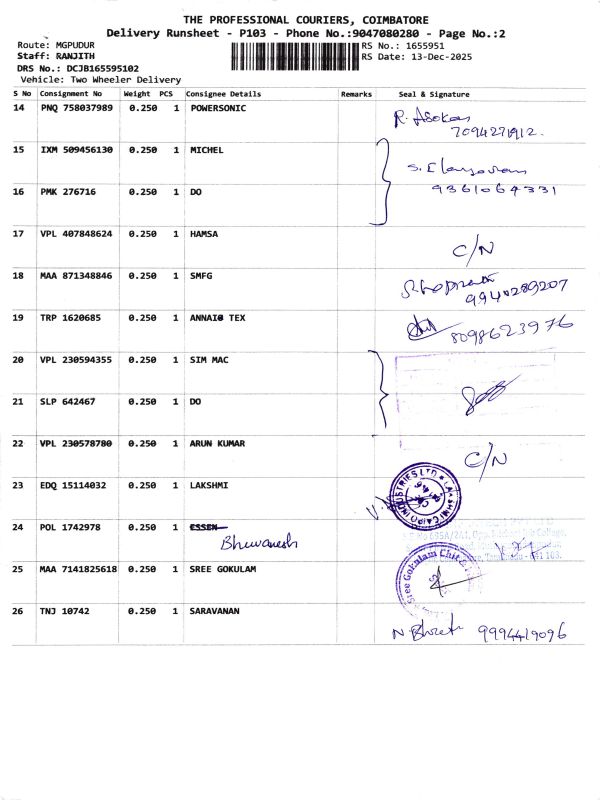 THE PROFESSIONAL COURIERS, COIMBATORE
Delivery Runsheet - P103 - Phone No.:9047080280 - Page No.:2
Route: MGPUDUR RS No.: 1655951
Staff: RANJITH RS Date: 13-Dec-2025
DRS No.: DCJB165595102
Vehicle: Two Wheeler Delivery
S No Consignment No Weight PCS Consignee Details Remarks Seal & Signature
14 PNQ 758037989 0.250 1 POWERSONIC R. Asokan
7094271912.
15 IXM 509456130 0.250 1 MICHEL
16 PMK 276716 0.250 1 DO 9361064331
17 VPL 407848624 0.250 1 HAMSA C/N
18 MAA 871348846 0.250 1 SMFG
9940289207
19 TRP 1620685 0.250 1 ANNAI TEX 8098623976
20 VPL 230594355 0.250 1 SIM MAC
21 SLP 642467 0.250 1 DO
22 VPL 230578780 0.250 1 ARUN KUMAR C/N
23 EDQ 15114032 0.250 1 LAKSHMI
24 POL 1742978 0.250 1 ESSEN
Bhuwanesh
25 MAA 7141825618 0.250 1 SREE GOKULAM Sree Gokulam Chit &
26 TNJ 10742 0.250 1 SARAVANAN
9994419096